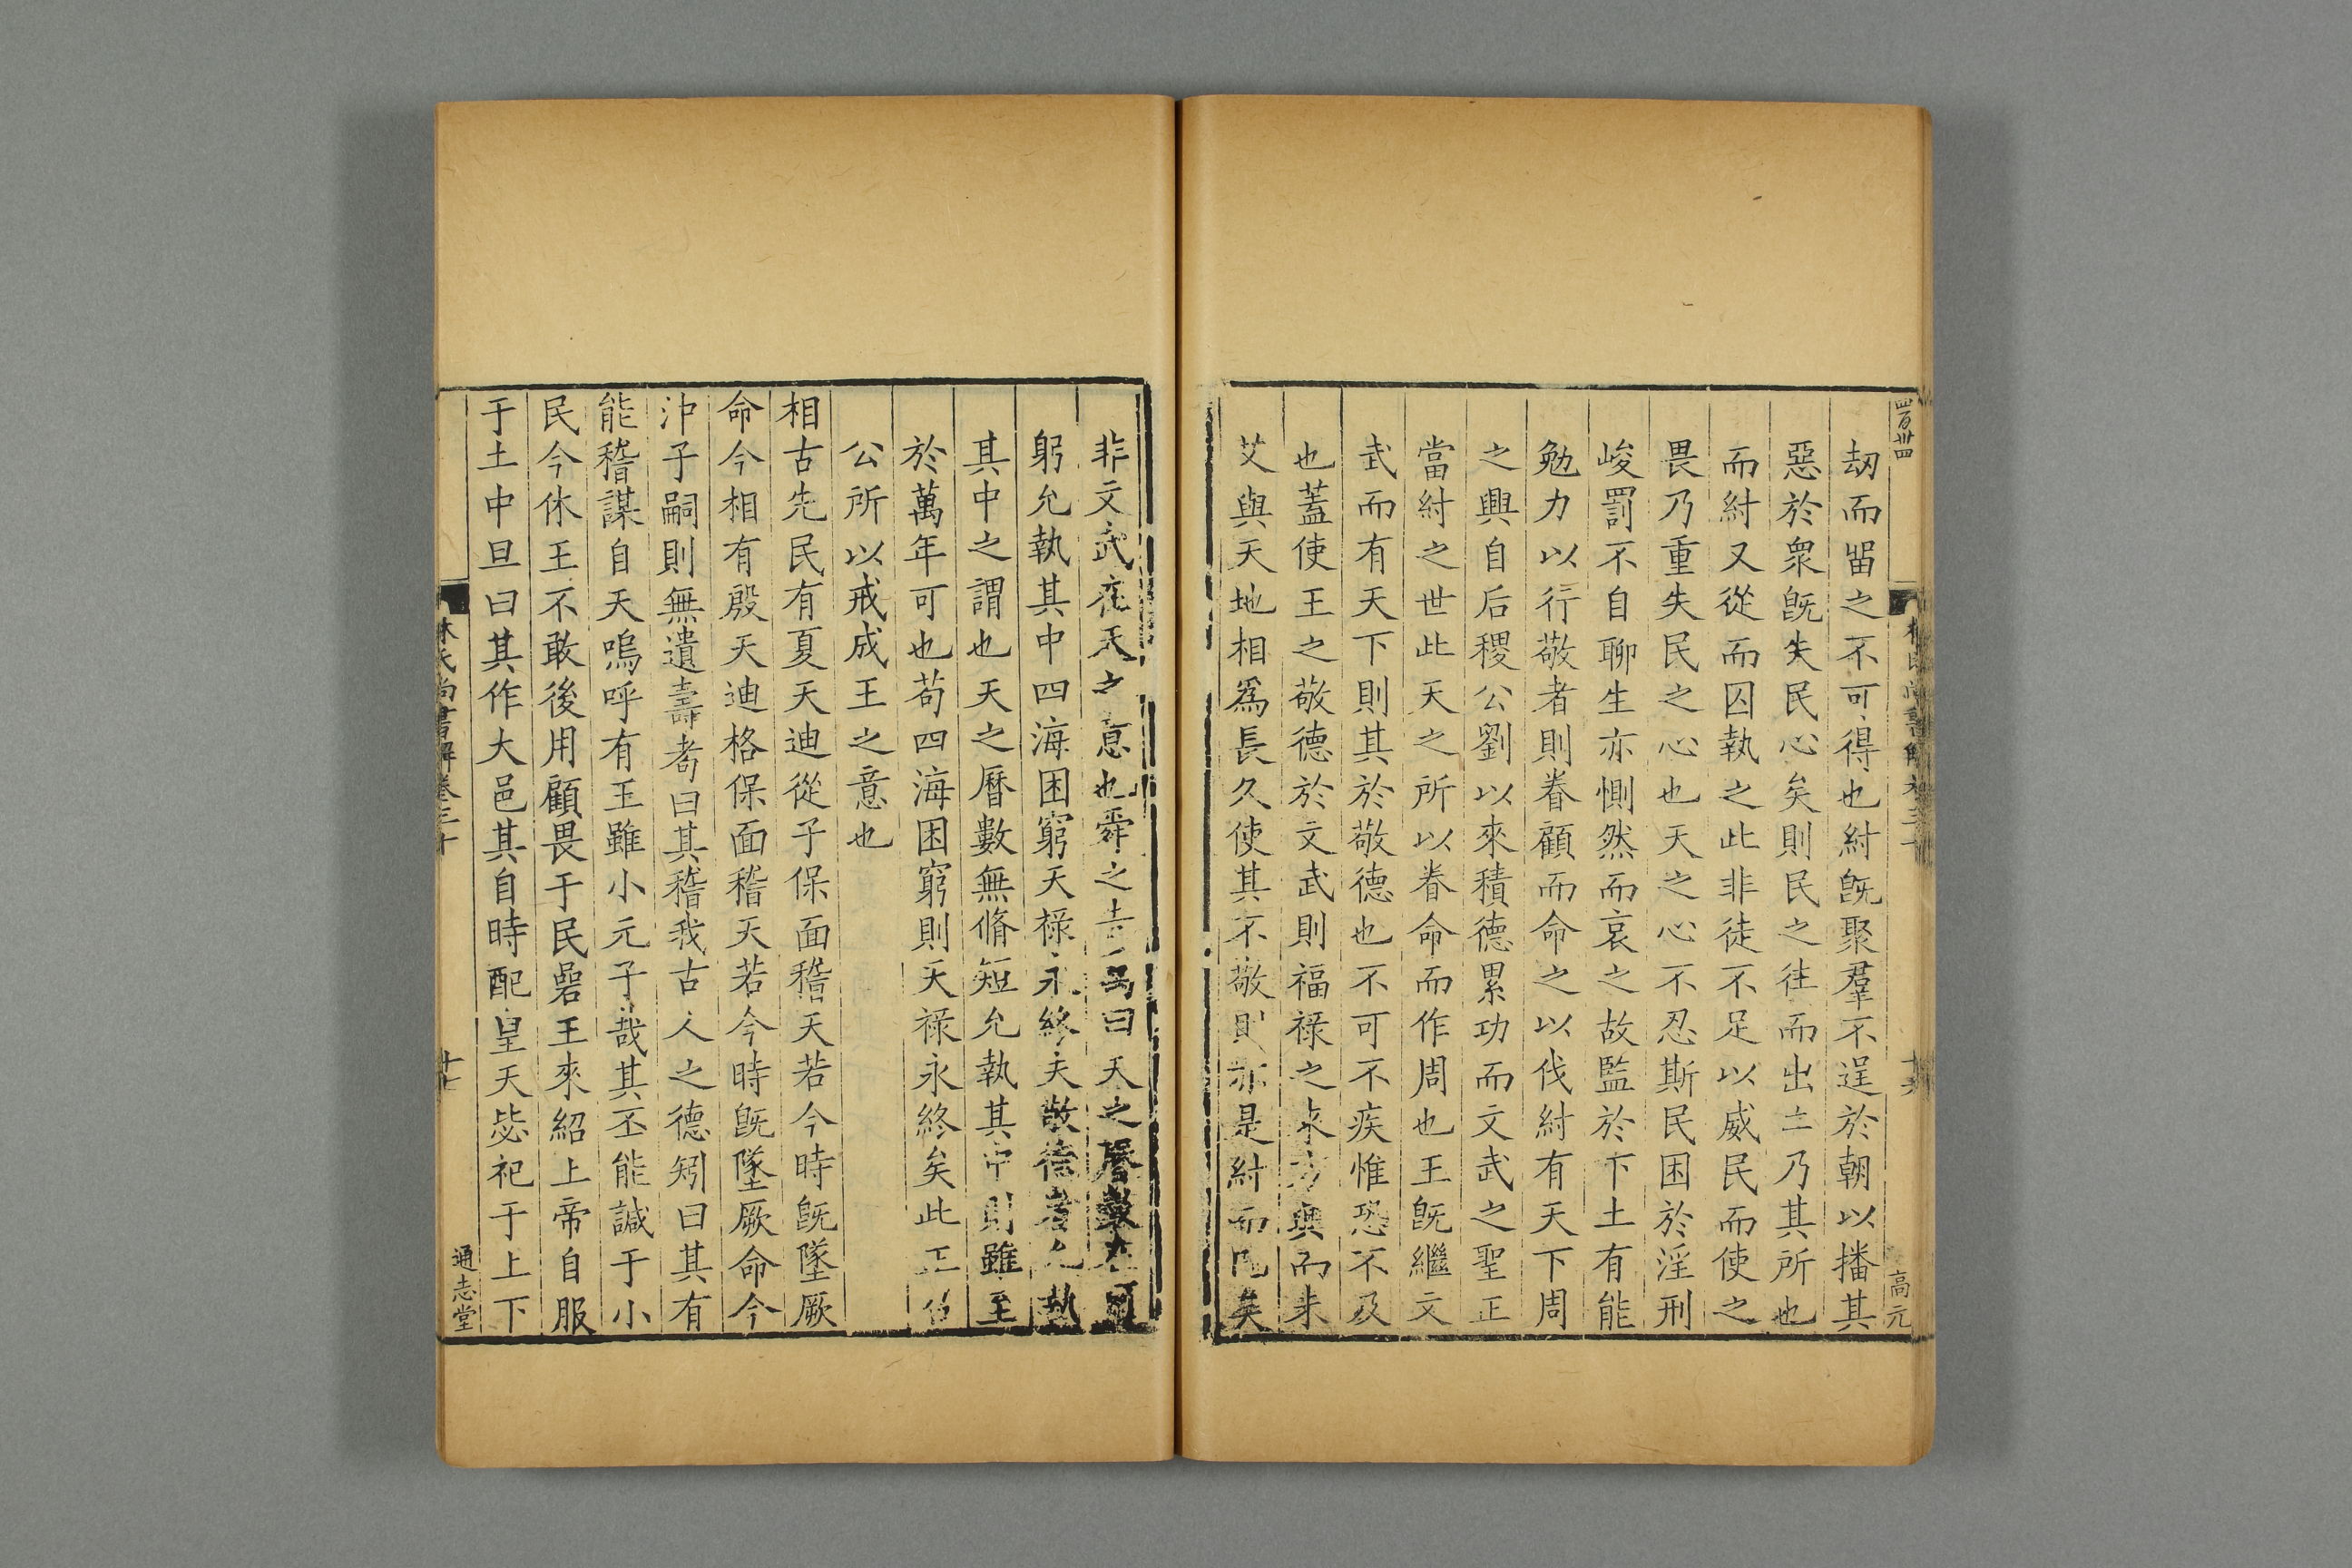 劫而畱之不可得也紂旣聚羣不逞於朝以播其
惡於衆旣失民心矣則民之往而出亡乃其所也
而紂又從而囚執之此非徒不足以威民而使之
畏乃重失民之心也天之心不忍斯民困於淫刑
峻罰不自聊生亦惻然而哀之故監於下土有能
勉力以行敬者則眷顧而命之以伐紂有天下周
之興自后稷公劉以來積德累功而文武之聖正
當紂之世此天之所以眷命而作周也王旣繼文
武而有天下則其於敬德也不可不疾惟恐不及
也蓋使王之敬德於文武則福祿之來方興而未
艾與天地相爲長久使其不敬則亦是紂而已矣
高元
非文武在天之意也舜之曰天之曆數在
躬允執其中四海困窮天祿永終夫敬德者允執
其中之謂也天之曆數無脩短允執其中則雖至
於萬年可也苟四海困窮則天祿永終矣此正召
公所以戒成王之意也
相古先民有夏天迪從子保面稽天若今時旣墜厥
命今相有殷天迪格保面稽天若今時旣墜厥命今
沖子嗣則無遺壽耇曰其稽我古人之德矧曰其有
能稽謀自天嗚呼有王雖小元子哉其丕能諴于小
民今休王不敢後用顧畏于民碞王來紹上帝自服
于土中旦曰其作大邑其自時配皇天毖祀于上下
林氏尚書解卷三十
通志堂